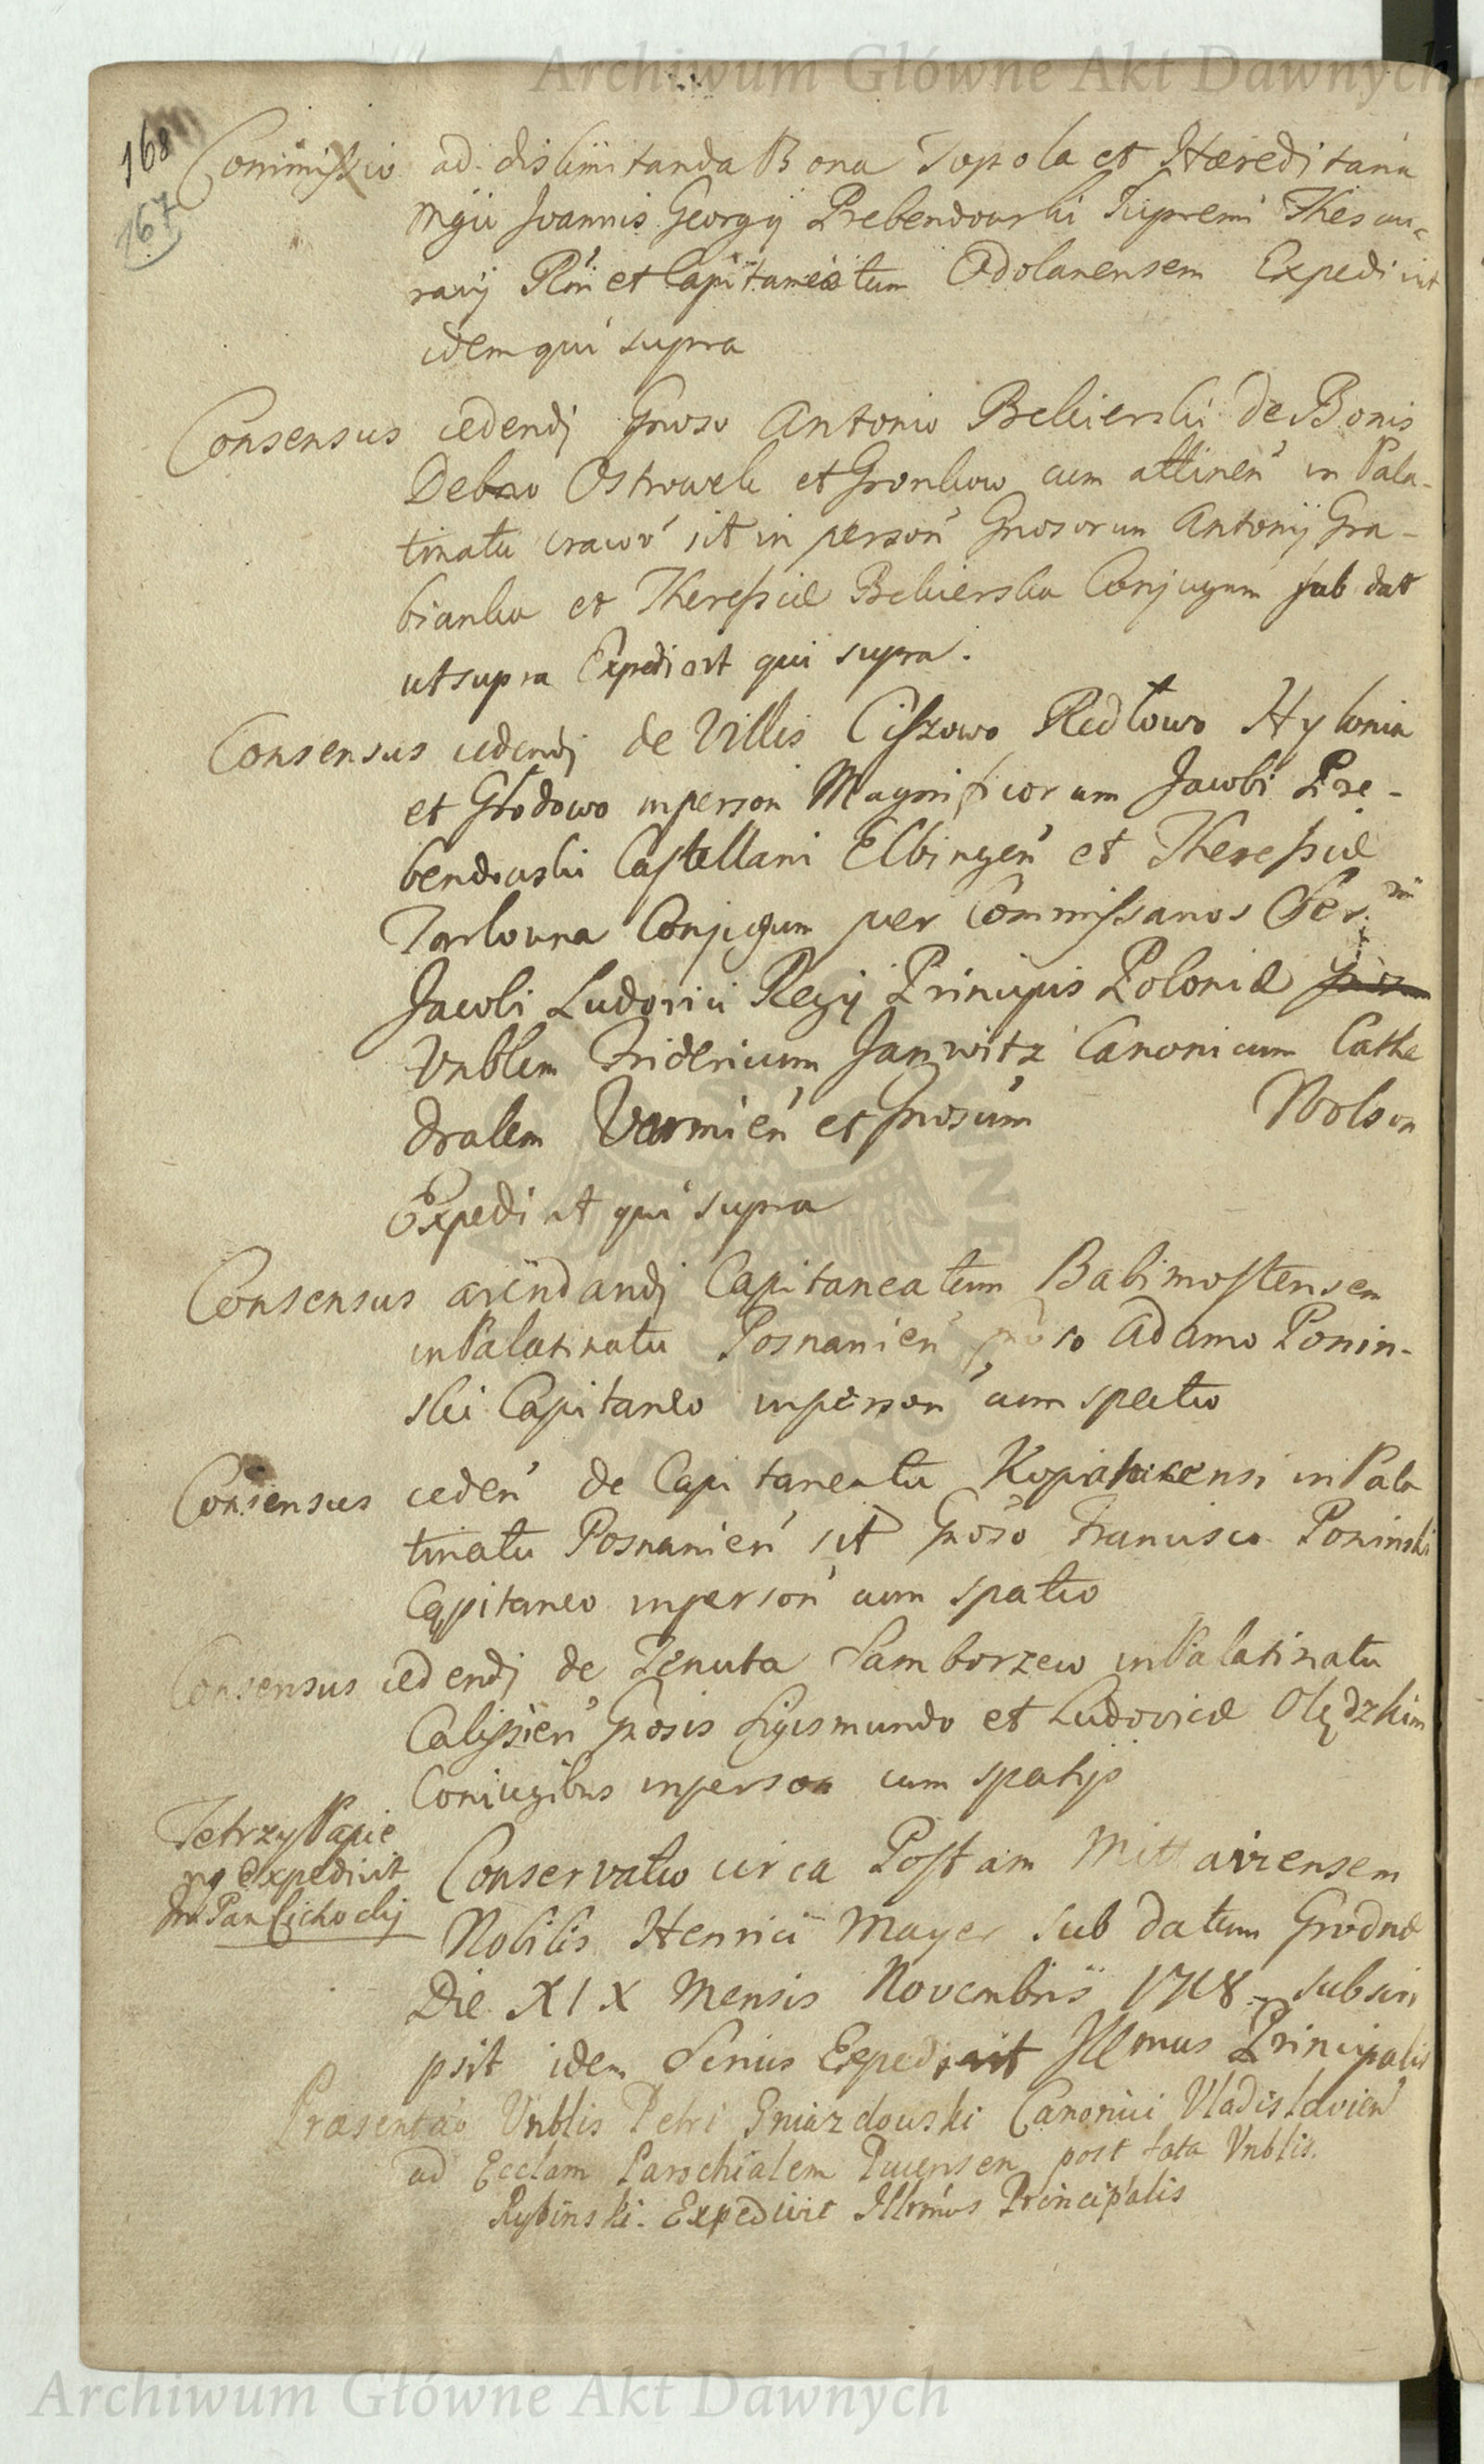 Archiwum Główne Akt Dawnych
168
167
Commissio ad dislimitanda Bona Topola et Hæreditaria
Mgci Joannis Georgij Prebendowski Supremi Thesau-
rarij Rni et Capitaneatum Odolanensem Expedivit
idem qui supra
Consensus cedendj Gnoso Antonio Bekierski de Bonis
Debno Ostrowek et Gronkow cum attinen in Pala-
tinatu Cracov sit in person Gnosorum Antonij Gra-
bianka et Theressiæ Bekierska Conjugum sub datt
ut supra Expedivit qui supra.
Consensus cedendj de Villis Ciszowo Redłowo Hylonia
et Głodowo in person Magnificorum Jacobi Pre-
bendowski Castellani Elbingen et Theressiæ
Tarlouna Conjugum per Commissarios Ser.mi
Jacobi Ludovici Regij Principis Poloniæ
Vnblem Fridericum Janwitz Canonicum Cathe
dralem Varmien et Gnosum Wolson
Expedivit qui supra
Consensus arendandj Capitaneatum Babimostensem
in Palatinatu Posnanien Gnoso Adamo Ponin-
ski Capitaneo in person cum spatio
Consensus ceden de Capitaneatu Kopanicensi in Pala
tinatu Posnanien sit Gnoso Francisco Poninski
Capitaneo in person cum spatio
Consensus cedendj de Tenuta Samborzew in Palatinatu
Calissien Gnosis Sigismundo et Ludovicæ Olędzkim
Coniugibus in person cum spatijs
Te trzy Papie
ry expedivit
Jm Pan Cichockj
Conservatio circa Postam Mittaviensem
Nobilis Henrici Mayer sub datum Grodnæ
Die XIX Mensis Novembris 1718. subscri
psit idem Serius Expedivit Illmus Principalis
Præsentao Vnblis Petri Gniazdowski Canonici Vladislavien
ad Ecclam Parochialem Pucensem post fata Vnblis.
Rybinski. Expedivit Illrmus Principalis
Archiwum Główne Akt Dawnych